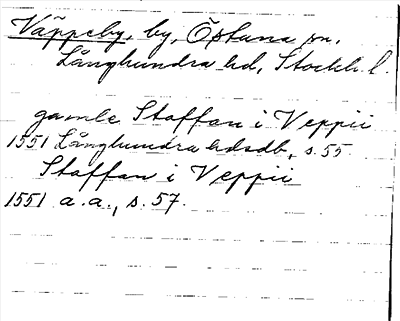 Väppeby, by, Östuna sn,
Långhundra hd, Stockh. l.
gamle Staffan i Veppii
1551 Långhundra hdsdb, s. 55.
Staffan i Veppii
1551 a.a., s. 57.